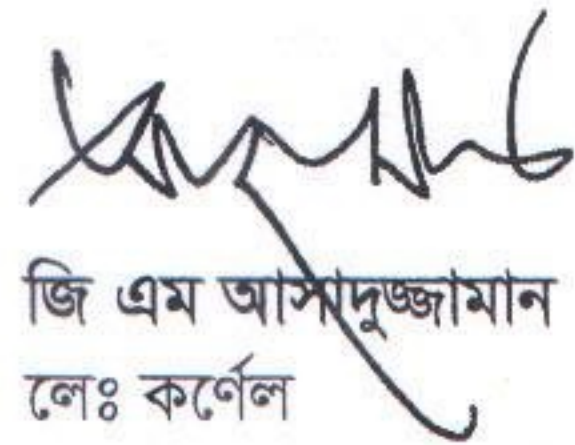 জি এম আসাদুজ্জামান
লেঃ কর্ণেল